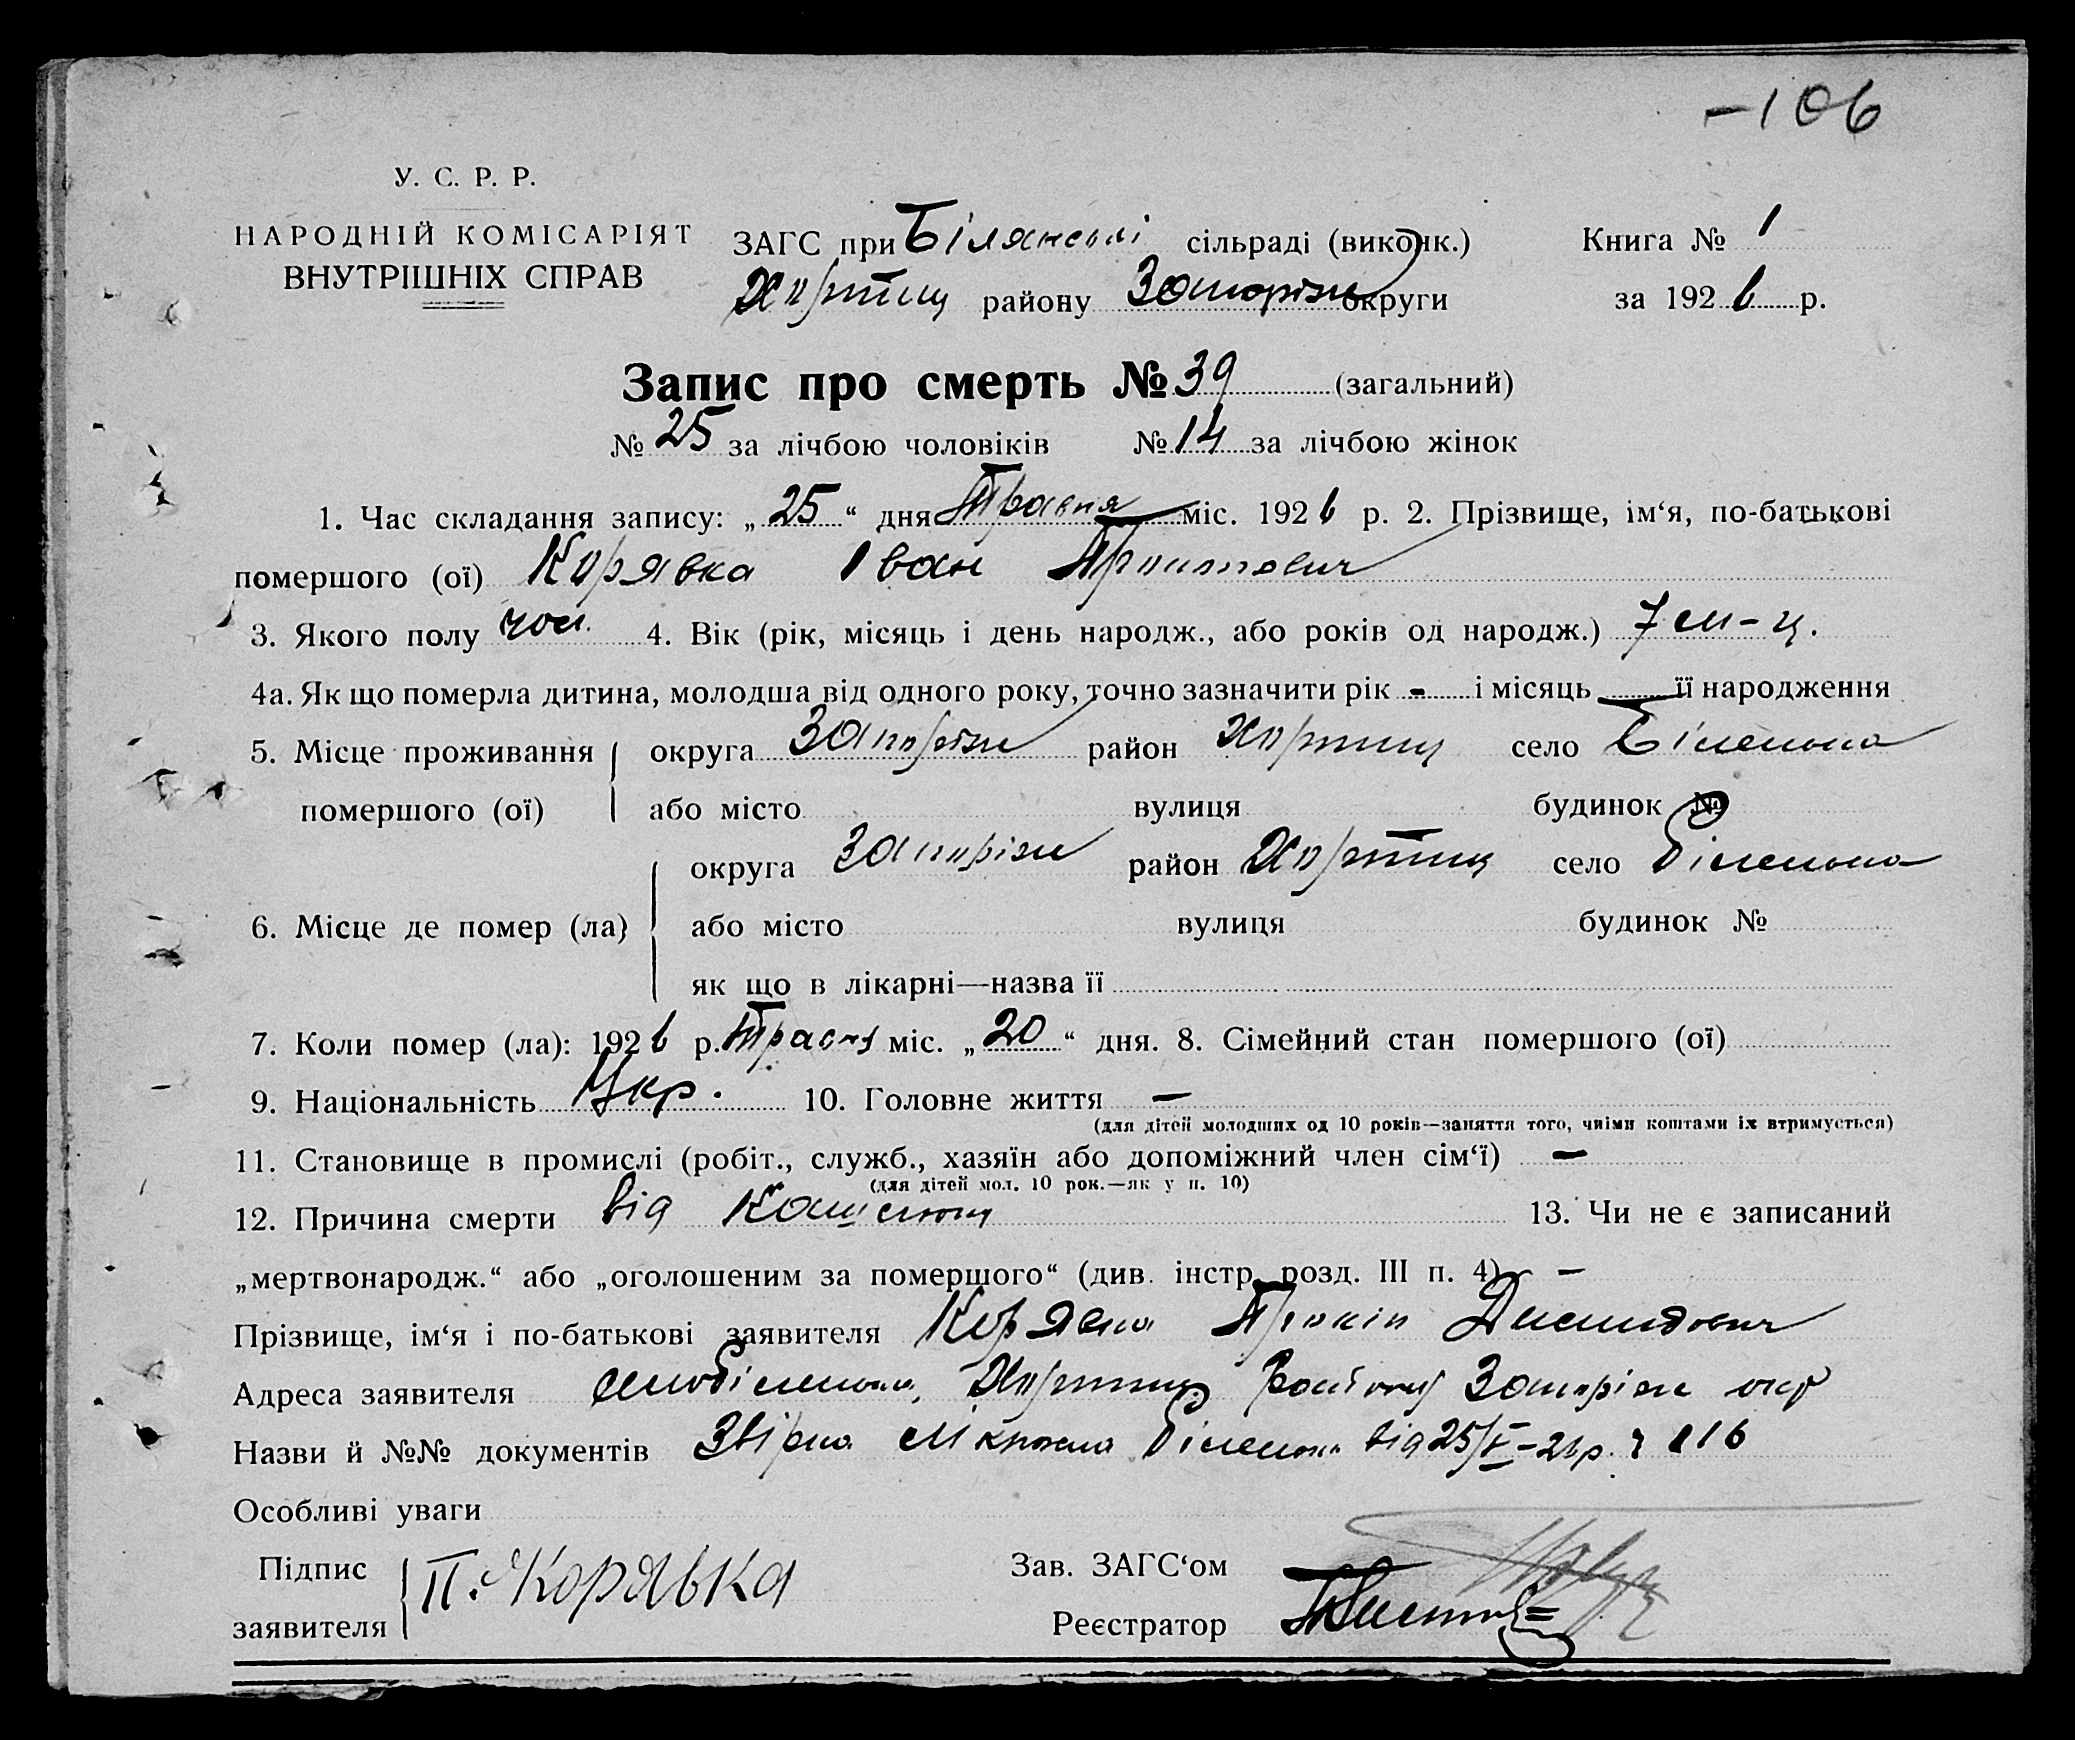 -106
У. С. Р. Р.
НАРОДНІЙ КОМІСАРІЯТ
ВНУТРІШНІХ СПРАВ
ЗАГС при сільраді (виконк.)
Хортиц району Запоріж округи
Книга № 1
за 1926 р.
Запис про смерть № 39 (загальний)
№ 25 за лічбою чоловіків № 14 за лічбою жінок
1. Час складання запису: „25“ дня Травня міс. 1926 р. 2. Прізвище, ім‘я, по-батькові
помершого (ої) Корявка Іван
3. Якого полу чол. 4. Вік (рік, місяць і день народж., або років од народж.) 7 м-ц.
4а. Як що померла дитина, молодша від одного року, точно зазначити рік - і місяць — її народження
5. Місце проживання округа Запоріж район Хортиц село Біленька
помершого (ої) або місто вулиця будинок №
округа Запоріж район Хортиц село Біленька
6. Місце де помер (ла) або місто вулиця будинок №
як що в лікарні—назва її
7. Коли помер (ла): 1926 р. Травня міс. „20“ дня. 8. Сімейний стан помершого (ої)
9. Національність Укр. 10. Головне життя —
(для дітей молодших од 10 років—заняття того, чиїми коштами їх втримується)
11. Становище в промислі (робіт., служб., хазяїн або допоміжний член сім‘ї) —
(для дітей мол. 10 рок.—як у п. 10)
12. Причина смерти від Кашелю 13. Чи не є записаний
„мертвонародж.“ або „оголошеним за помершого“ (див. інстр. розд. III п. 4) —
Прізвище, ім‘я і по-батькові заявителя Корявка
Адреса заявителя Хортиц Запоріж окр
Назви й №№ документів Біленьки від 25/V-26р. 116
Особливі уваги
Підпис
заявителя П. Корявка
Зав. ЗАГС‘ом
Реєстратор